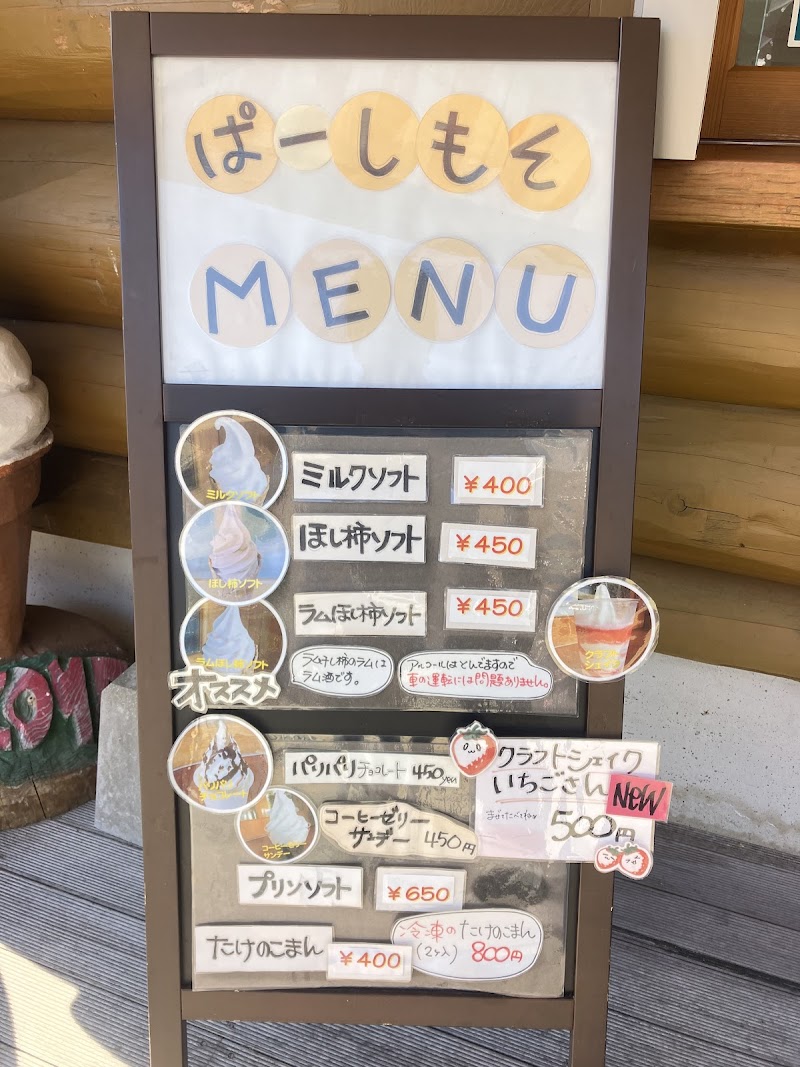 ぱーしもん
MENU
ミルクソフト
ミルクソフト
￥400
ほし柿ソフト
ほし柿ソフト
￥450
ラムほし柿ソフト
ラムほし柿ソフト
￥450
オススメ
ラムほし柿のラムは
ラム酒です。
アルコールはとんでますので
車の運転には問題ありません。
クラフト
シェイク
パリパリ
チョコレート
パリパリチョコレート 450yen
クラフトシェイク
いちごさん
NEW
まぜてたべてね
500円
コーヒーゼリー
サンデー
コーヒーゼリー
サンデー 450円
プリンソフト
￥650
たけのこまん
￥400
冷凍のたけのこまん
(2ヶ入) 800円